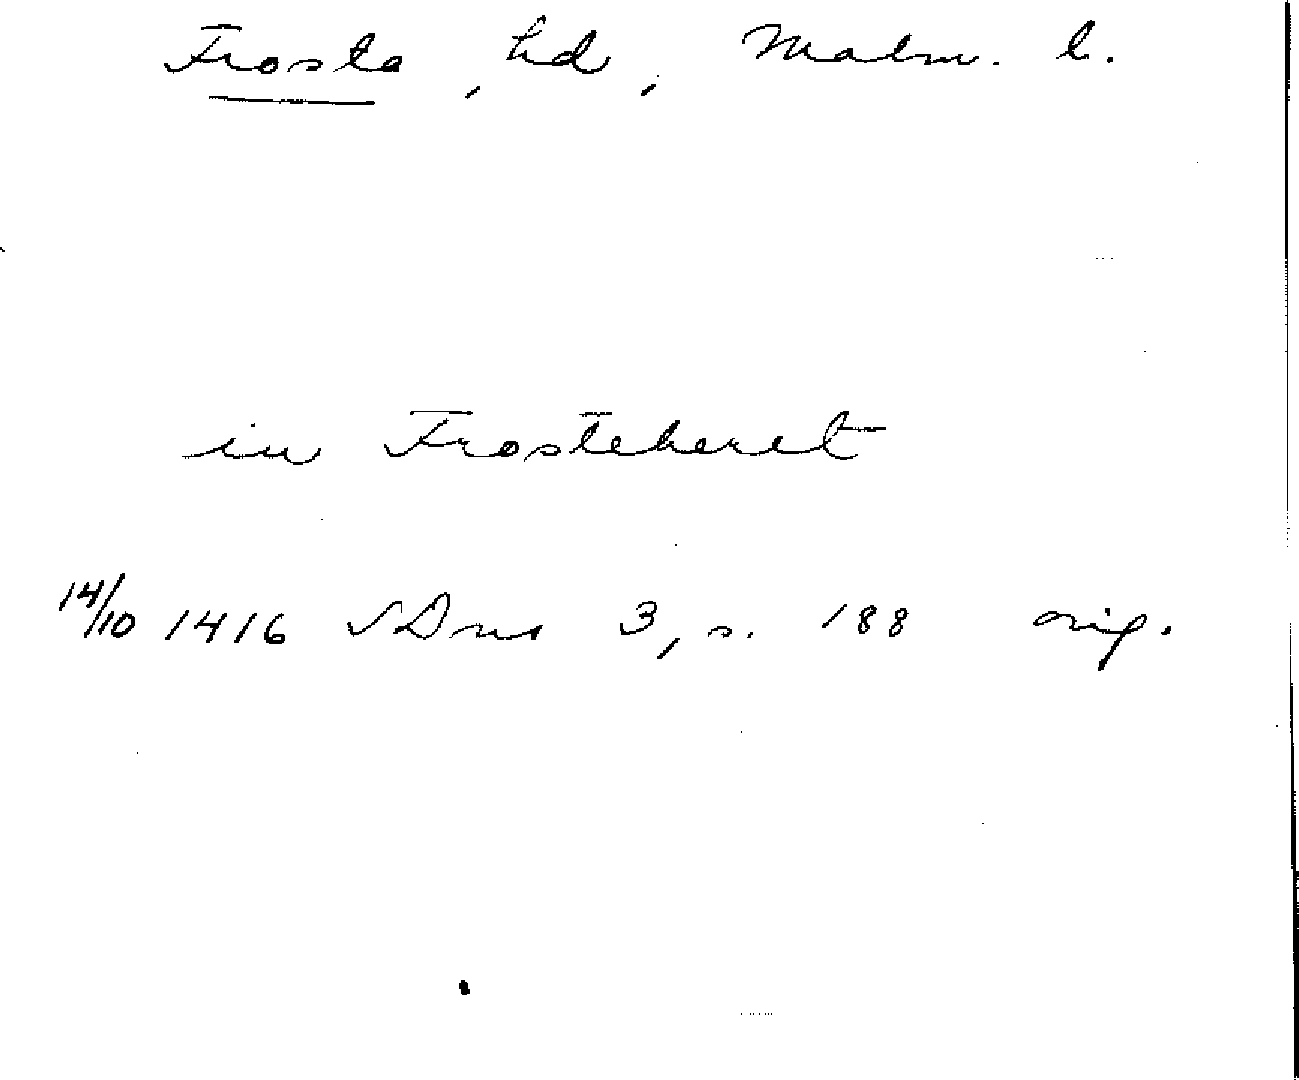 Frosta, hd, Malm. l.
in Frosteheret
14/10 1416 SDns 3, s. 188 orig.